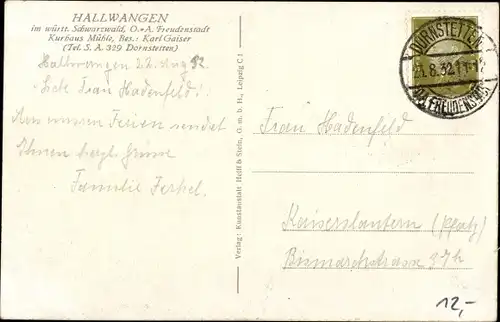 HALLWANGEN
im württ. Schwarzwald, O.-A. Freudenstadt
Kurhaus Mühle, Bes.: Karl Gaiser
(Tel. S. A. 329 Dornstetten)
Hallwangen 22. Aug 32
Liebe Frau Hadenfeld!
Aus unseren Ferien sendet
Ihnen herzl. Grüsse
Familie Ferkel.
Verlag: Kunstanstalt Hoff & Stein, G. m. b. H., Leipzig C 1
DORNSTETTEN
8.32.11-12
FREUDENSTADT
Frau Hadenfeld
Kaiserslautern (Pfalz)
Bismarckstrasse 37 h
12,-